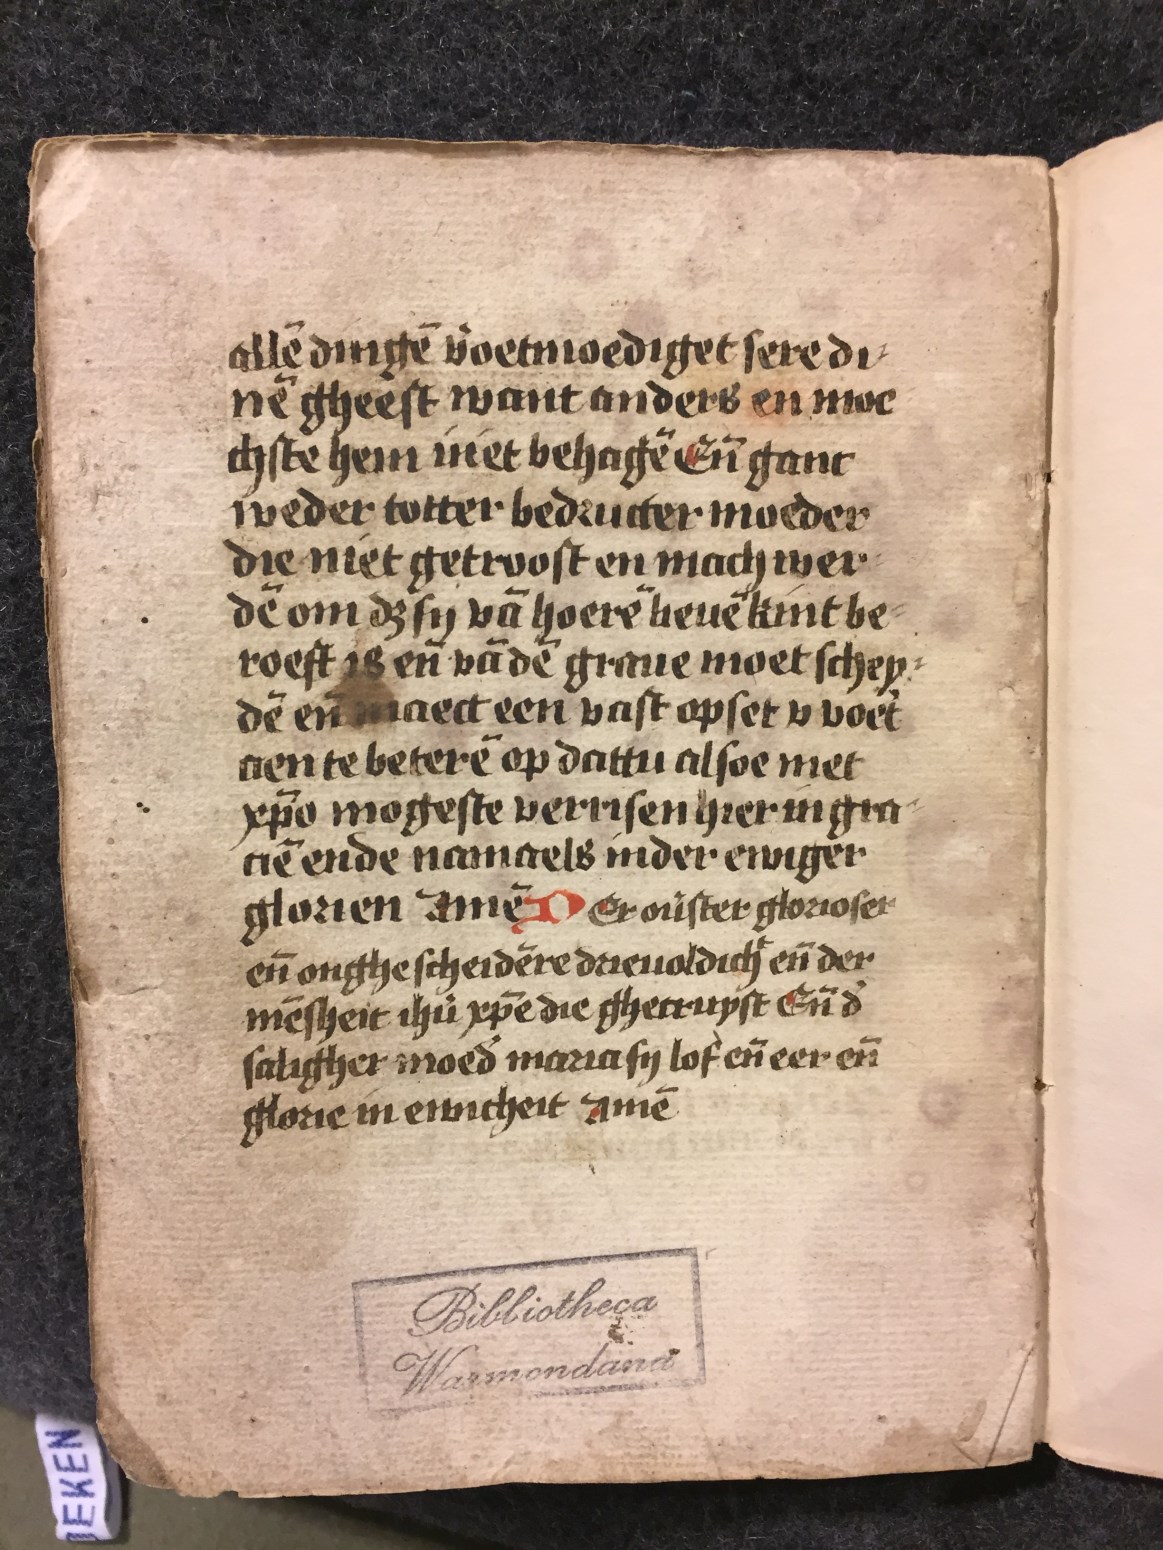 allē dingē v̄oetmoediget sere di-
nē gheest want anders en moc
chste hem niet behagē Eñ ganc
weder totter bedructer moeder
die niet getroost en mach wer-
dē om dꝫ sy vā hoerē lieuē kint be-
roeft is eñ vā dē graue moet schey-
dē eñ maect een vast opset v voert
aen te beterē op dattu alsoe met
xp̄o mogeste verrisen hier in gra-
ciē ende namaels inder ewiger
glorien Amē Der ouerster glorioser
eñ onghescheidēre drieuoldich eñ der
mēsheit ihū xp̄e die ghecruyst Eñ d'
saligher moed' maria sy lof eñ eer eñ
glorie in ewicheit Amē
Bibliotheca
Warmondana
EKEN